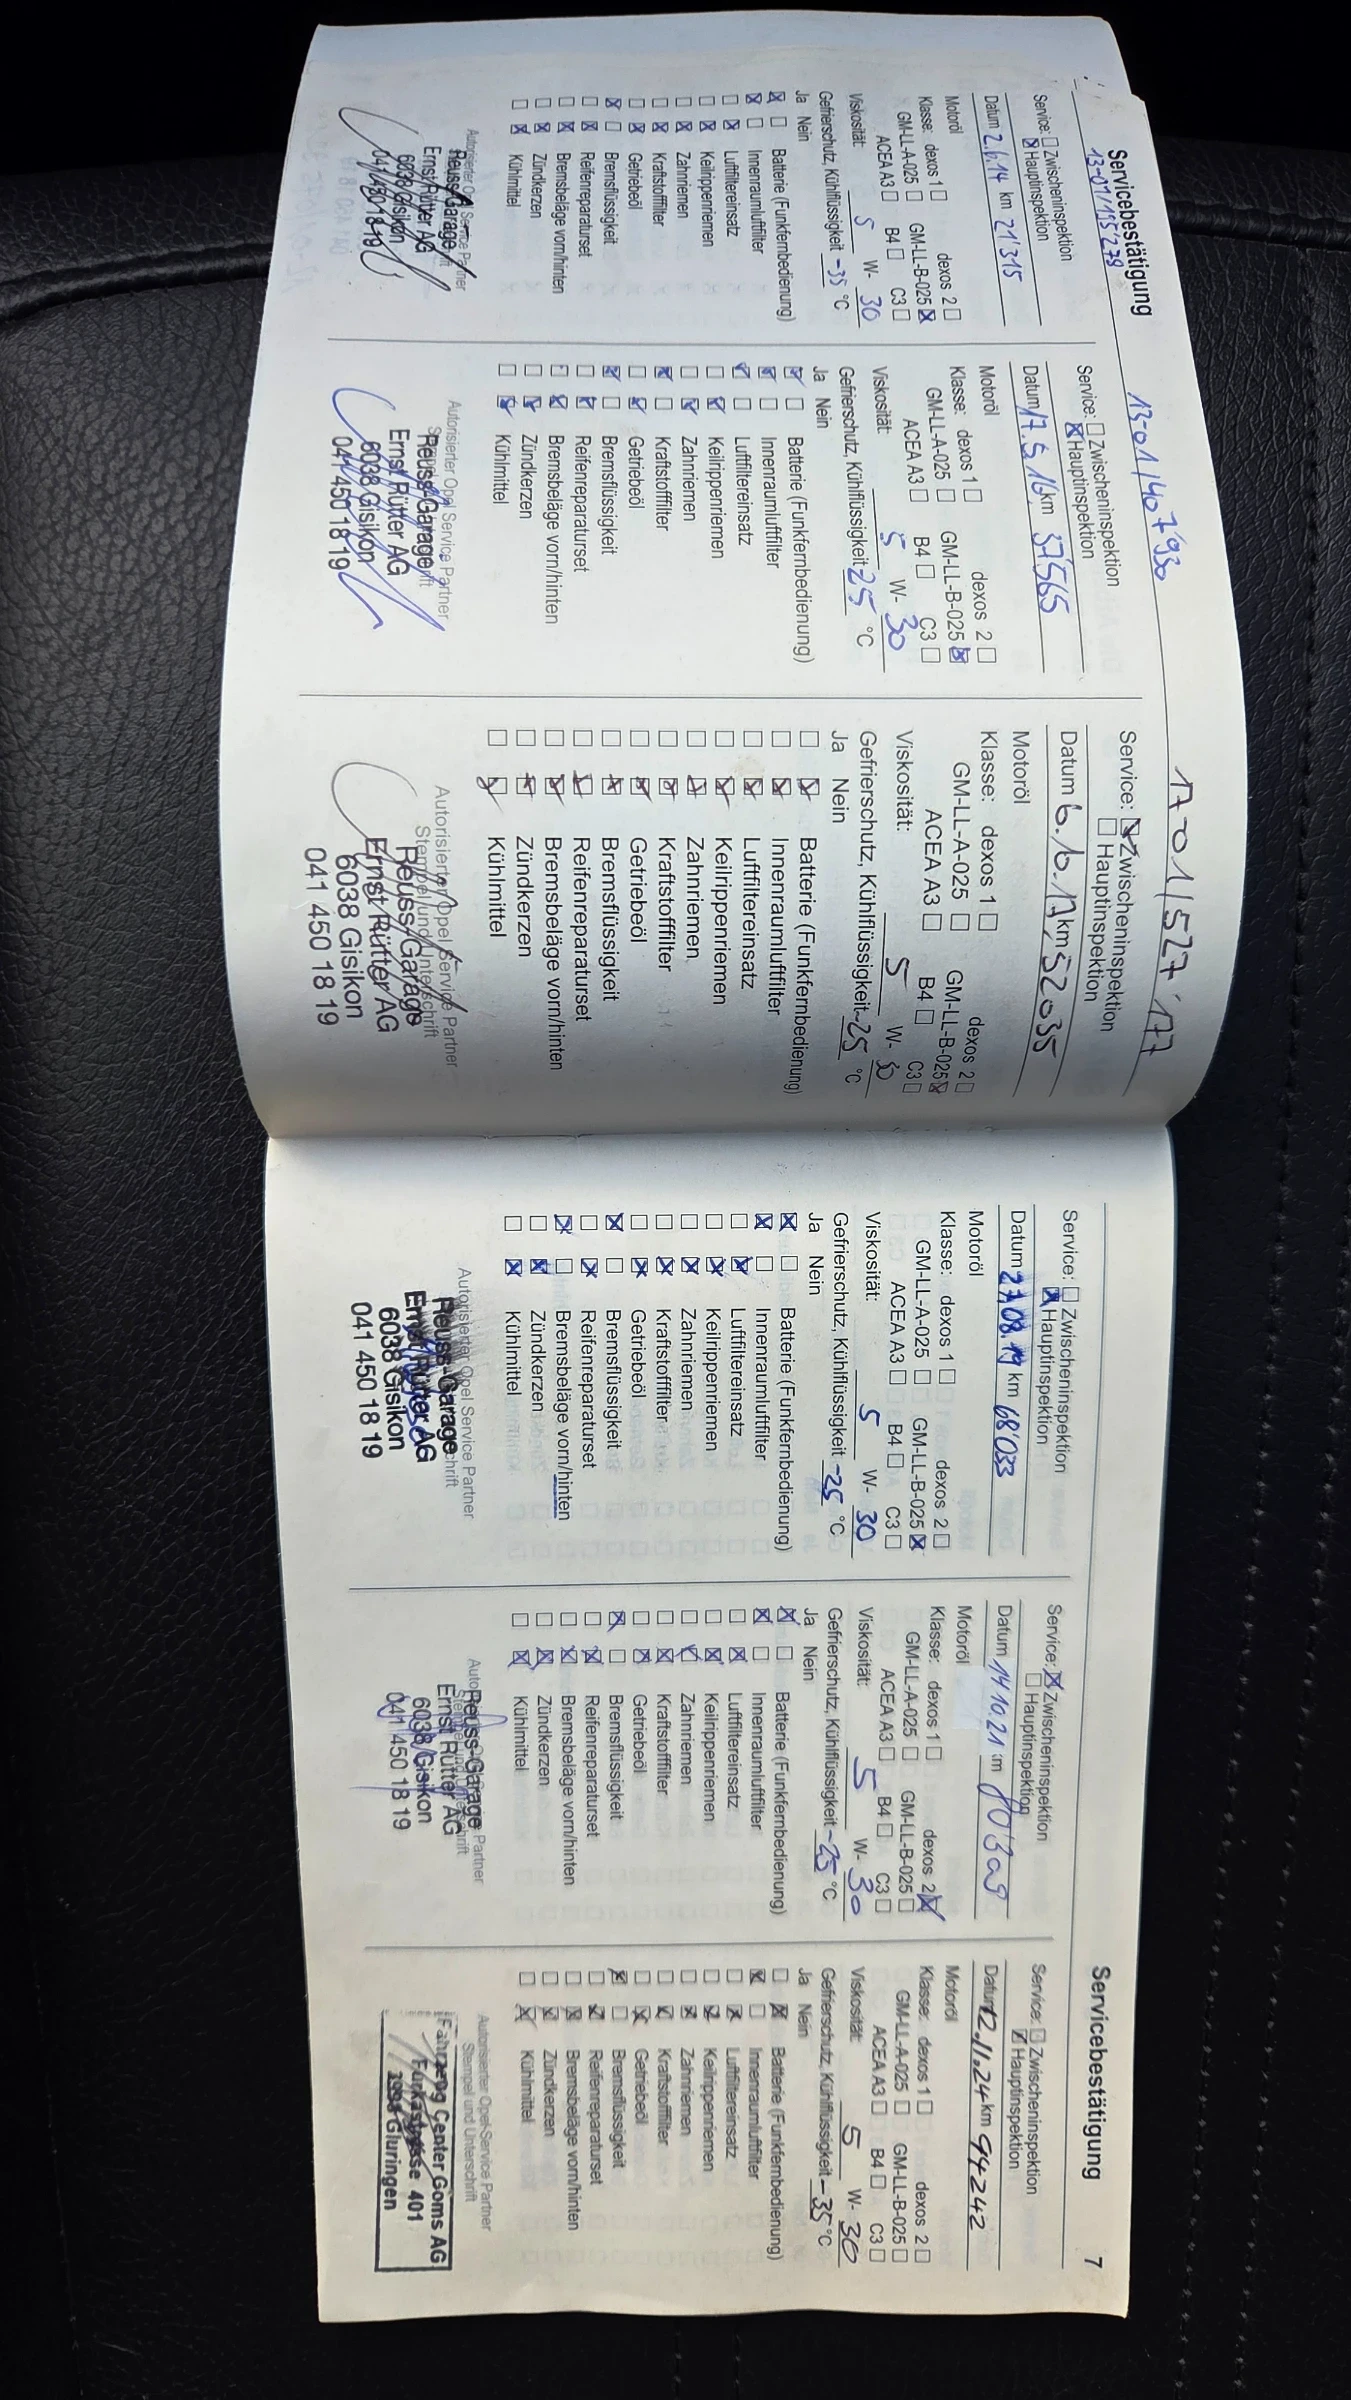 Servicebestätigung
13-01/195'279
Service: Zwischeninspektion
Hauptinspektion
Datum 2.6.14 km 21'315
Motoröl
Klasse: dexos 1 dexos 2
GM-LL-A-025 GM-LL-B-025
ACEA A3 B4 C3
Viskosität: 5 W- 30
Gefrierschutz, Kühlflüssigkeit -35 °C
Ja Nein
Batterie (Funkfernbedienung)
Innenraumluftfilter
Luftfiltereinsatz
Keilrippenriemen
Zahnriemen
Kraftstofffilter
Getriebeöl
Bremsflüssigkeit
Reifenreparaturset
Bremsbeläge vorn/hinten
Zündkerzen
Kühlmittel
Autorisierter Opel Service Partner
Reuss-Garage
Ernst Rütter AG
6038 Gisikon
041 450 18 19
13-01/407'930
Service: Zwischeninspektion
Hauptinspektion
Datum 17.5.16 km 37'565
Motoröl
Klasse: dexos 1 dexos 2
GM-LL-A-025 GM-LL-B-025
ACEA A3 B4 C3
Viskosität: 5 W- 30
Gefrierschutz, Kühlflüssigkeit -25 °C
Ja Nein
Batterie (Funkfernbedienung)
Innenraumluftfilter
Luftfiltereinsatz
Keilrippenriemen
Zahnriemen
Kraftstofffilter
Getriebeöl
Bremsflüssigkeit
Reifenreparaturset
Bremsbeläge vorn/hinten
Zündkerzen
Kühlmittel
Autorisierter Opel Service Partner
Reuss-Garage
Ernst Rütter AG
6038 Gisikon
041 450 18 19
17-01/527'177
Service: Zwischeninspektion
Hauptinspektion
Datum 6.10.17 km 52035
Motoröl
Klasse: dexos 1 dexos 2
GM-LL-A-025 GM-LL-B-025
ACEA A3 B4 C3
Viskosität: 5 W- 30
Gefrierschutz, Kühlflüssigkeit -25 °C
Ja Nein
Batterie (Funkfernbedienung)
Innenraumluftfilter
Luftfiltereinsatz
Keilrippenriemen
Zahnriemen
Kraftstofffilter
Getriebeöl
Bremsflüssigkeit
Reifenreparaturset
Bremsbeläge vorn/hinten
Zündkerzen
Kühlmittel
Autorisierter Opel Service Partner
Stempel und Unterschrift
Reuss-Garage
Ernst Rütter AG
6038 Gisikon
041 450 18 19
Servicebestätigung 7
Service: Zwischeninspektion
Hauptinspektion
Datum 27.08.19 km 68'033
Motoröl
Klasse: dexos 1 dexos 2
GM-LL-A-025 GM-LL-B-025
ACEA A3 B4 C3
Viskosität: 5 W- 30
Gefrierschutz, Kühlflüssigkeit -25 °C
Ja Nein
Batterie (Funkfernbedienung)
Innenraumluftfilter
Luftfiltereinsatz
Keilrippenriemen
Zahnriemen
Kraftstofffilter
Getriebeöl
Bremsflüssigkeit
Reifenreparaturset
Bremsbeläge vorn/hinten
Zündkerzen
Kühlmittel
Autorisierter Opel Service Partner
Reuss-Garage
Ernst Rütter AG
6038 Gisikon
041 450 18 19
Service: Zwischeninspektion
Hauptinspektion
Datum 14.10.21 km 80'309
Motoröl
Klasse: dexos 1 dexos 2
GM-LL-A-025 GM-LL-B-025
ACEA A3 B4 C3
Viskosität: 5 W- 30
Gefrierschutz, Kühlflüssigkeit -25 °C
Ja Nein
Batterie (Funkfernbedienung)
Innenraumluftfilter
Luftfiltereinsatz
Keilrippenriemen
Zahnriemen
Kraftstofffilter
Getriebeöl
Bremsflüssigkeit
Reifenreparaturset
Bremsbeläge vorn/hinten
Zündkerzen
Kühlmittel
Reuss-Garage
Ernst Rütter AG
6038 Gisikon
041 450 18 19
Service: Zwischeninspektion
Hauptinspektion
Datum 12.11.24 km 94242
Motoröl
Klasse: dexos 1 dexos 2
GM-LL-A-025 GM-LL-B-025
ACEA A3 B4 C3
Viskosität: 5 W- 30
Gefrierschutz, Kühlflüssigkeit -35 °C
Ja Nein
Batterie (Funkfernbedienung)
Innenraumluftfilter
Luftfiltereinsatz
Keilrippenriemen
Zahnriemen
Kraftstofffilter
Getriebeöl
Bremsflüssigkeit
Reifenreparaturset
Bremsbeläge vorn/hinten
Zündkerzen
Kühlmittel
Autorisierter Opel Service Partner
Stempel und Unterschrift
Fahrzeug Center Goms AG
Furkastrasse 401
Gluringen